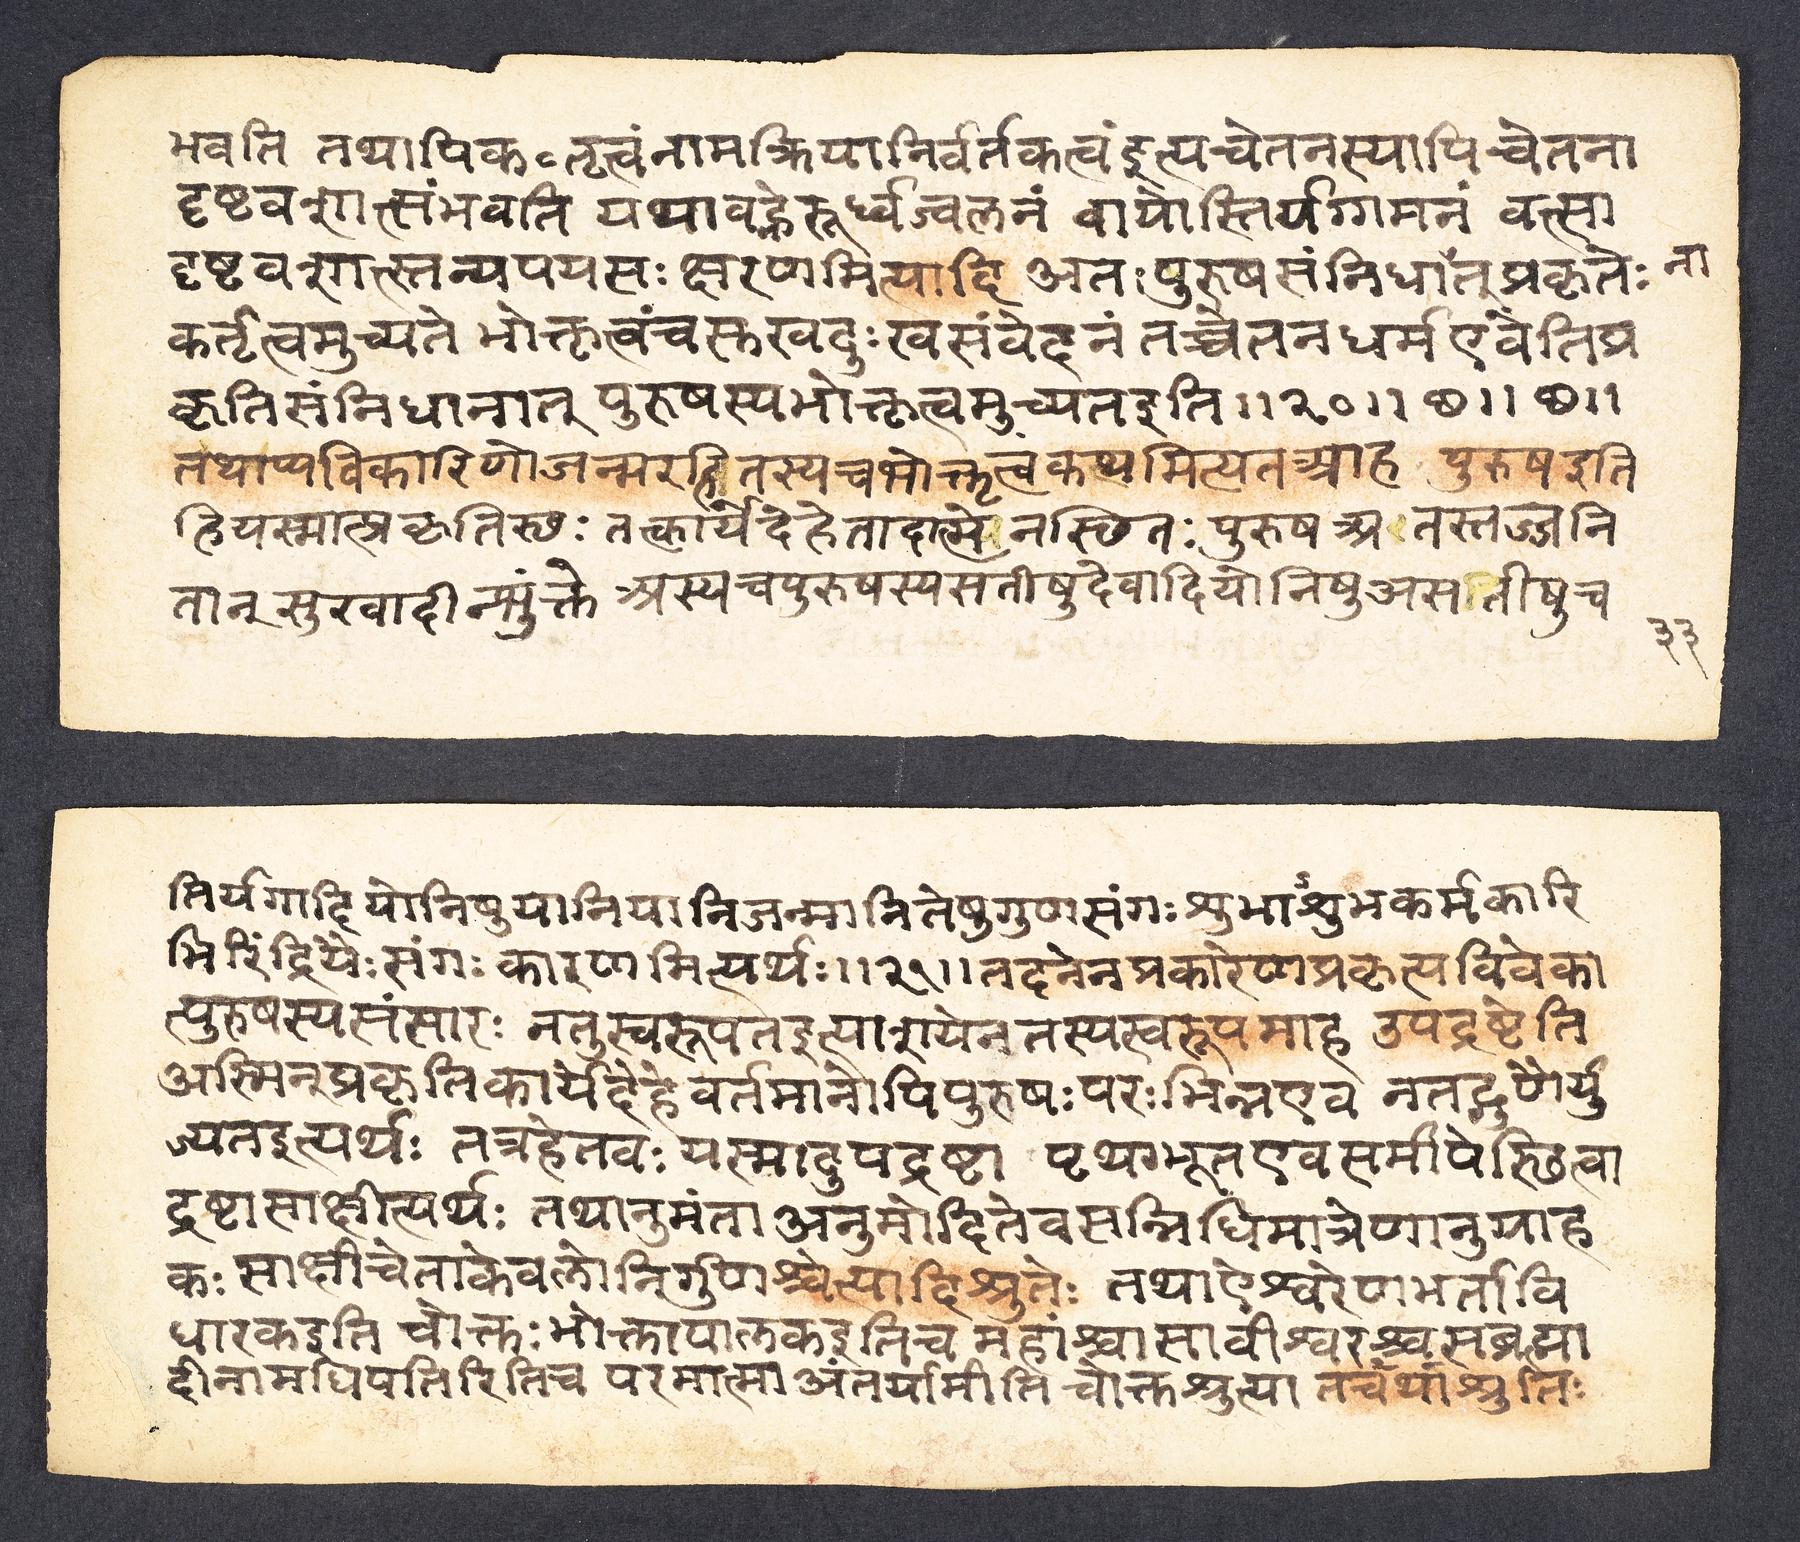 भवति तथापिकर्तृत्वंनामक्रियानिर्वर्तकत्वंइत्यचेतनस्यापिचेतना
दृष्टवशात्संभवति यथावह्नेरूर्ध्वज्वलनं वायोस्तिर्यग्गमनं वत्सा
दृष्टवशात्स्तन्यपयसः क्षरणमित्यादि अतःपुरुषसंनिधात्प्रकृतेः ना
कर्तृत्वमुच्यते भोक्तृत्वंचसुखदुःखसंवेदनं तच्चेतनधर्मएवेतिप्र
कृतिसंनिधानात् पुरुषस्यभोक्तृत्वमुच्यतइति॥२०॥छ॥छ॥
तथाप्यविकारिणोजन्मरहितस्यचभोक्तृत्वंकथमित्यतआह पुरुषइति
हियस्मात्प्रकृतिस्थः तत्कार्येदेहेतादात्म्येनस्थितः पुरुषअतस्तज्जनि
तान् सुखादीन्भुंक्ते अस्यचपुरुषस्यसतीषुदेवादियोनिषुअसतीषुच
३३
तिर्यगादियोनिषुयानियानिजन्मानितेषुगुणसंगः शुभाऽशुभकर्मकारि
भिरिंद्रियैःसंगः कारणमित्यर्थः॥२१॥तदनेनप्रकारेणप्रकृत्यविवेका
त्पुरुषस्यसंसारः नतुस्वरूपतइत्याशयेनतस्यस्वरूपमाह उपद्रष्टेति
अस्मिन्प्रकृतिकार्येदेहे वर्तमानोपिपुरुषःपरःभिन्नएव नतद्गुणैर्यु
ज्यतइत्यर्थः तत्रहेतवः यस्मादुपद्रष्टा पृथग्भूतएवसमीपेस्थित्वा
द्रष्टासाक्षीत्यर्थः तथानुमंता अनुमोदितेवसन्निधिमात्रेणानुग्राह
कः साक्षीचेताकेवलोनिर्गुणश्चेत्यादिश्रुतेः तथाऐश्वरेणभर्तावि
धारकइति चोक्तःभोक्तापालकइतिच महांश्चासावीश्वरश्चसब्रह्मा
दीनामधिपतिरितिच परमात्मा अंतर्यामीति चोक्तश्रुत्या तचथाश्रुतिः